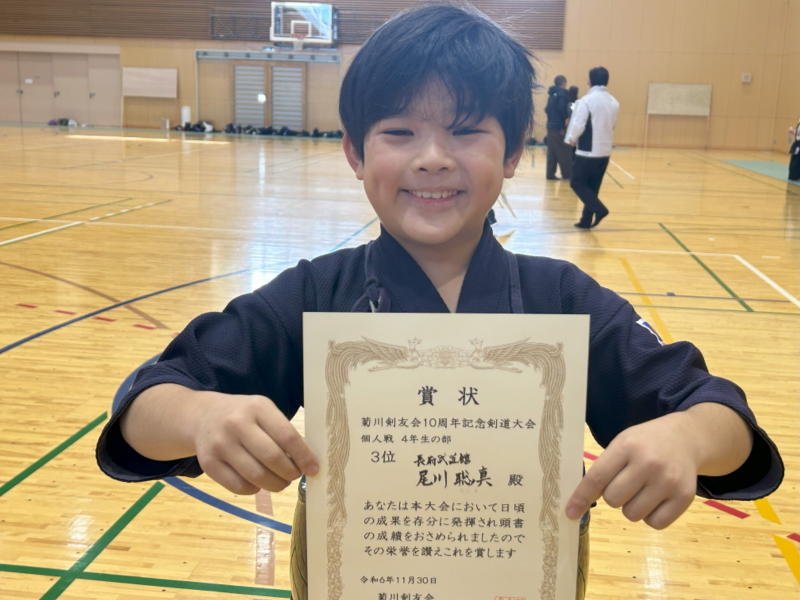 賞状
菊川剣友会10周年記念剣道大会
個人戦 4年生の部
3位 長府武道館
尾川 聡真 殿
あなたは本大会において日頃
の成果を存分に発揮され頭書
の成績をおさめられましたので
その栄誉を讃えこれを賞します
令和6年11月30日
菊川剣友会